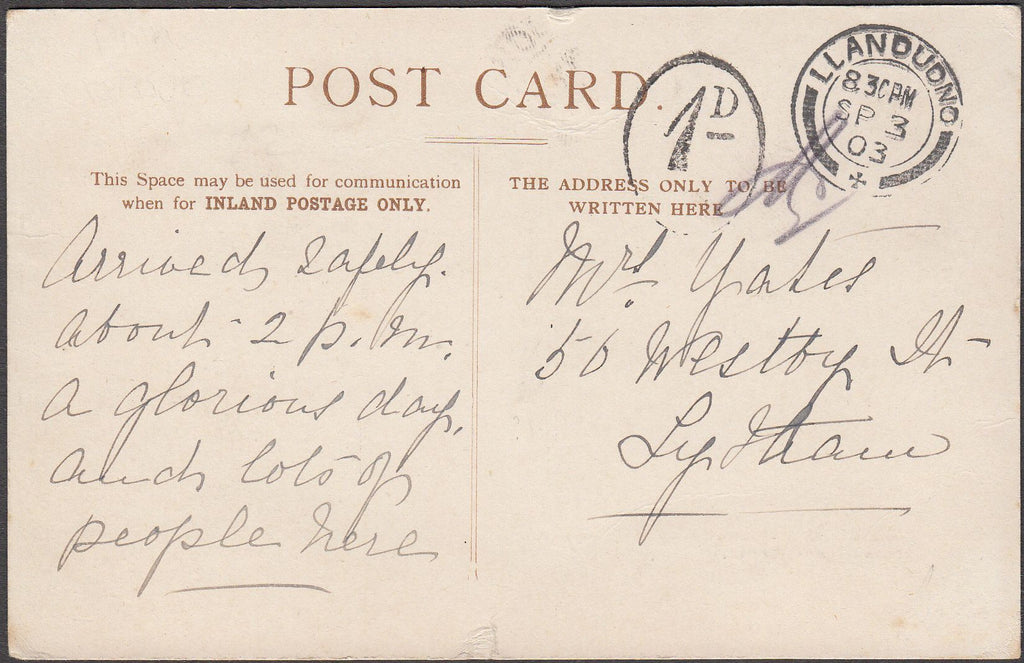 POST CARD.
1D
LLANDUDNO
8.30PM
SP 3
03
This Space may be used for communication
when for INLAND POSTAGE ONLY.
THE ADDRESS ONLY TO BE
WRITTEN HERE
Arrived safely.
about 2 p.m.
a glorious day,
and lots of
people here
Mrs Yates
50 Westby St
Lytham